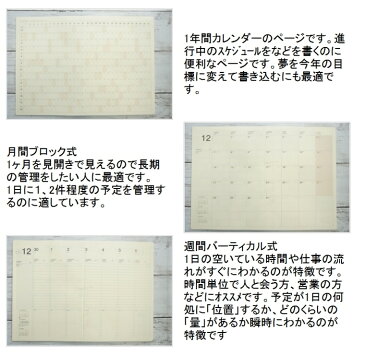 1年間カレンダーのページです。進
行中のスケジュールをなどを書くのに
便利なページです。夢を今年の目
標に変えて書き込むにも最適で
す。
月間ブロック式
1ヶ月を見開きで見えるので長期
の管理をしたい人に最適です。
1日に1、2件程度の予定を管理す
るのに適しています。
12
週間バーティカル式
1日の空いている時間や仕事の流
れがすぐにわかるのが特徴です。
時間単位で人と会う方、営業の方
などにオススメです。予定が1日の何
処に「位置」するか、どのくらいの
「量」があるか瞬時にわかるのが
特徴です
12